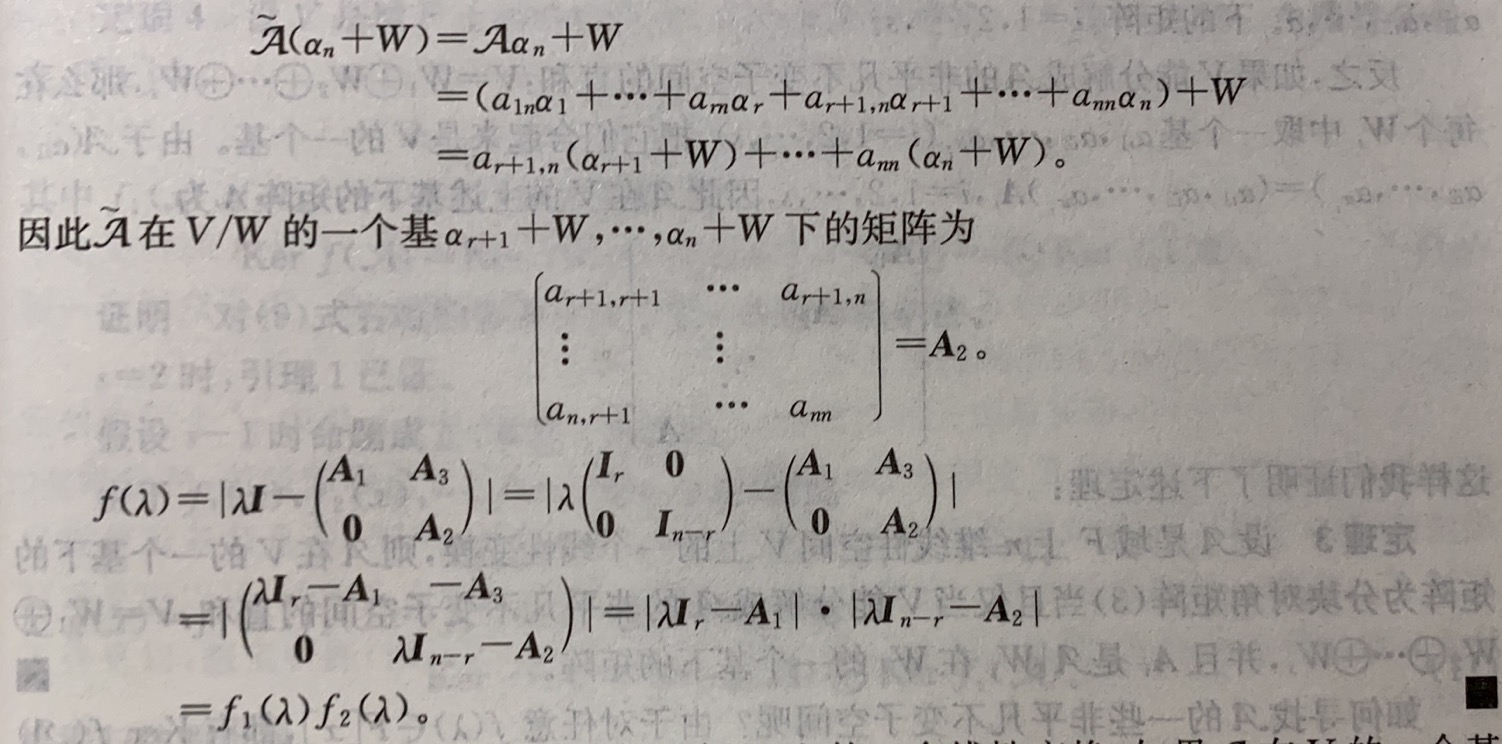 𝒜̃(αₙ+W)=𝒜αₙ+W
=(a₁ₙα₁+⋯+aᵣₙαᵣ+aᵣ₊₁,ₙαᵣ₊₁+⋯+aₙₙαₙ)+W
=aᵣ₊₁,ₙ(αᵣ₊₁+W)+⋯+aₙₙ(αₙ+W)。
因此𝒜̃在 V/W 的一个基αᵣ₊₁+W,⋯,αₙ+W 下的矩阵为
aᵣ₊₁,ᵣ₊₁ ⋯ aᵣ₊₁,ₙ
⋮ ⋮ =A₂。
aₙ,ᵣ₊₁ ⋯ aₙₙ
f(λ)=|λI-(A₁ A₃ 0 A₂)|=|λ(Iᵣ 0 0 Iₙ₋ᵣ)-(A₁ A₃ 0 A₂)|
=|(λIᵣ-A₁ -A₃ 0 λIₙ₋ᵣ-A₂)|=|λIᵣ-A₁|·|λIₙ₋ᵣ-A₂|
=f₁(λ)f₂(λ)。 ■